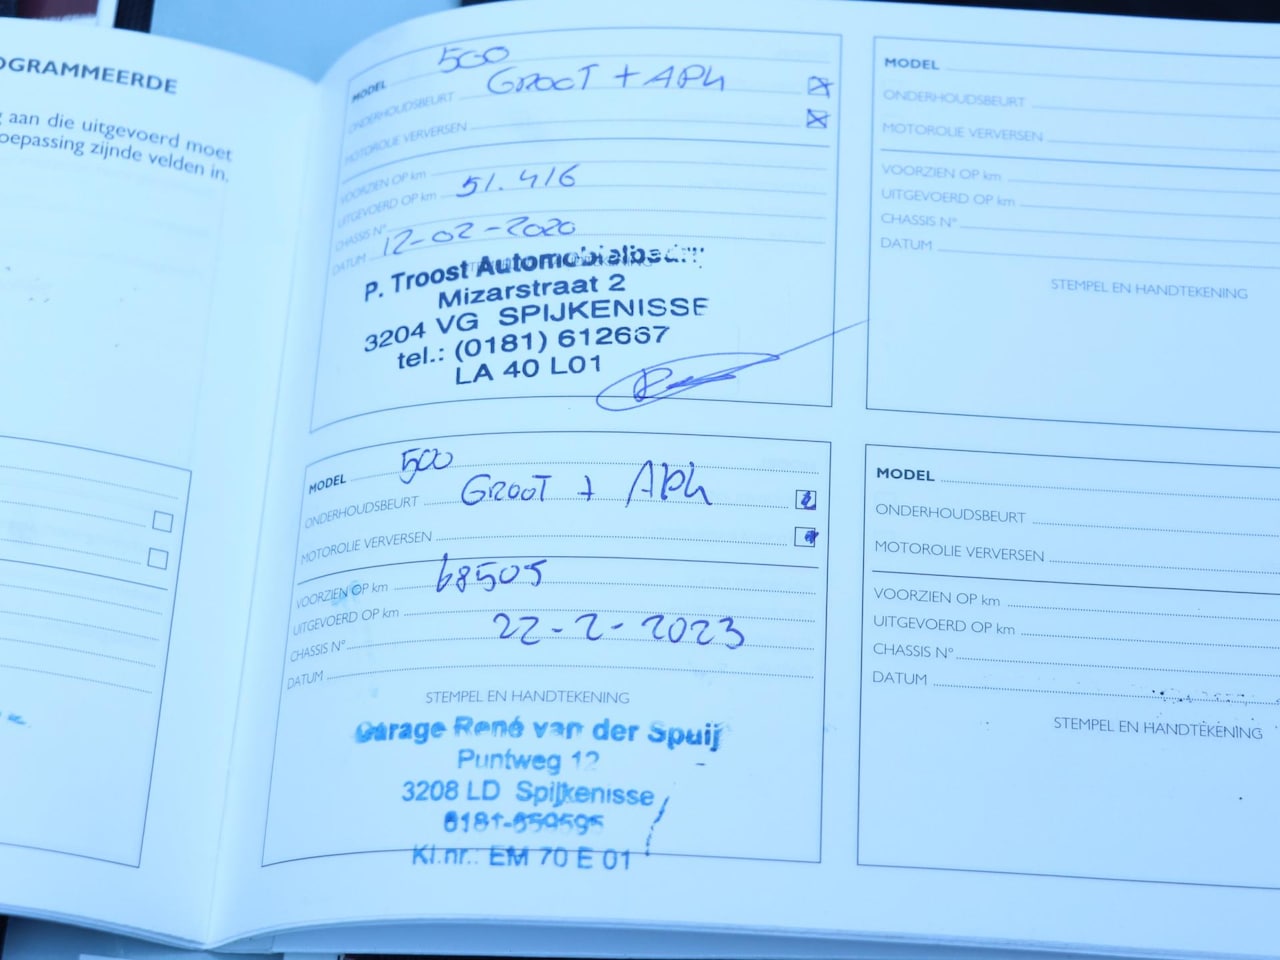 OGRAMMEERDE
aan die uitgevoerd moet
oepassing zijnde velden in.
MODEL 500
ONDERHOUDSBEURT GROOT + APK
MOTOROLIE VERVERSEN
VOORZIEN OP km
UITGEVOERD OP km 51.416
CHASSIS N°
DATUM 12-02-2020
P. Troost Automobielbedr
Mizarstraat 2
3204 VG SPIJKENISSE
tel.: (0181) 612667
LA 40 L01
MODEL 500
ONDERHOUDSBEURT GROOT + APK
MOTOROLIE VERVERSEN
VOORZIEN OP km 68505
UITGEVOERD OP km
CHASSIS N° 22-2-2023
DATUM
STEMPEL EN HANDTEKENING
Garage René van der Spuij
Puntweg 12
3208 LD Spijkenisse
0181-659595
Kl.nr.: EM 70 E 01
MODEL
ONDERHOUDSBEURT
MOTOROLIE VERVERSEN
VOORZIEN OP km
UITGEVOERD OP km
CHASSIS N°
DATUM
STEMPEL EN HANDTEKENING
MODEL
ONDERHOUDSBEURT
MOTOROLIE VERVERSEN
VOORZIEN OP km
UITGEVOERD OP km
CHASSIS N°
DATUM
STEMPEL EN HANDTEKENING